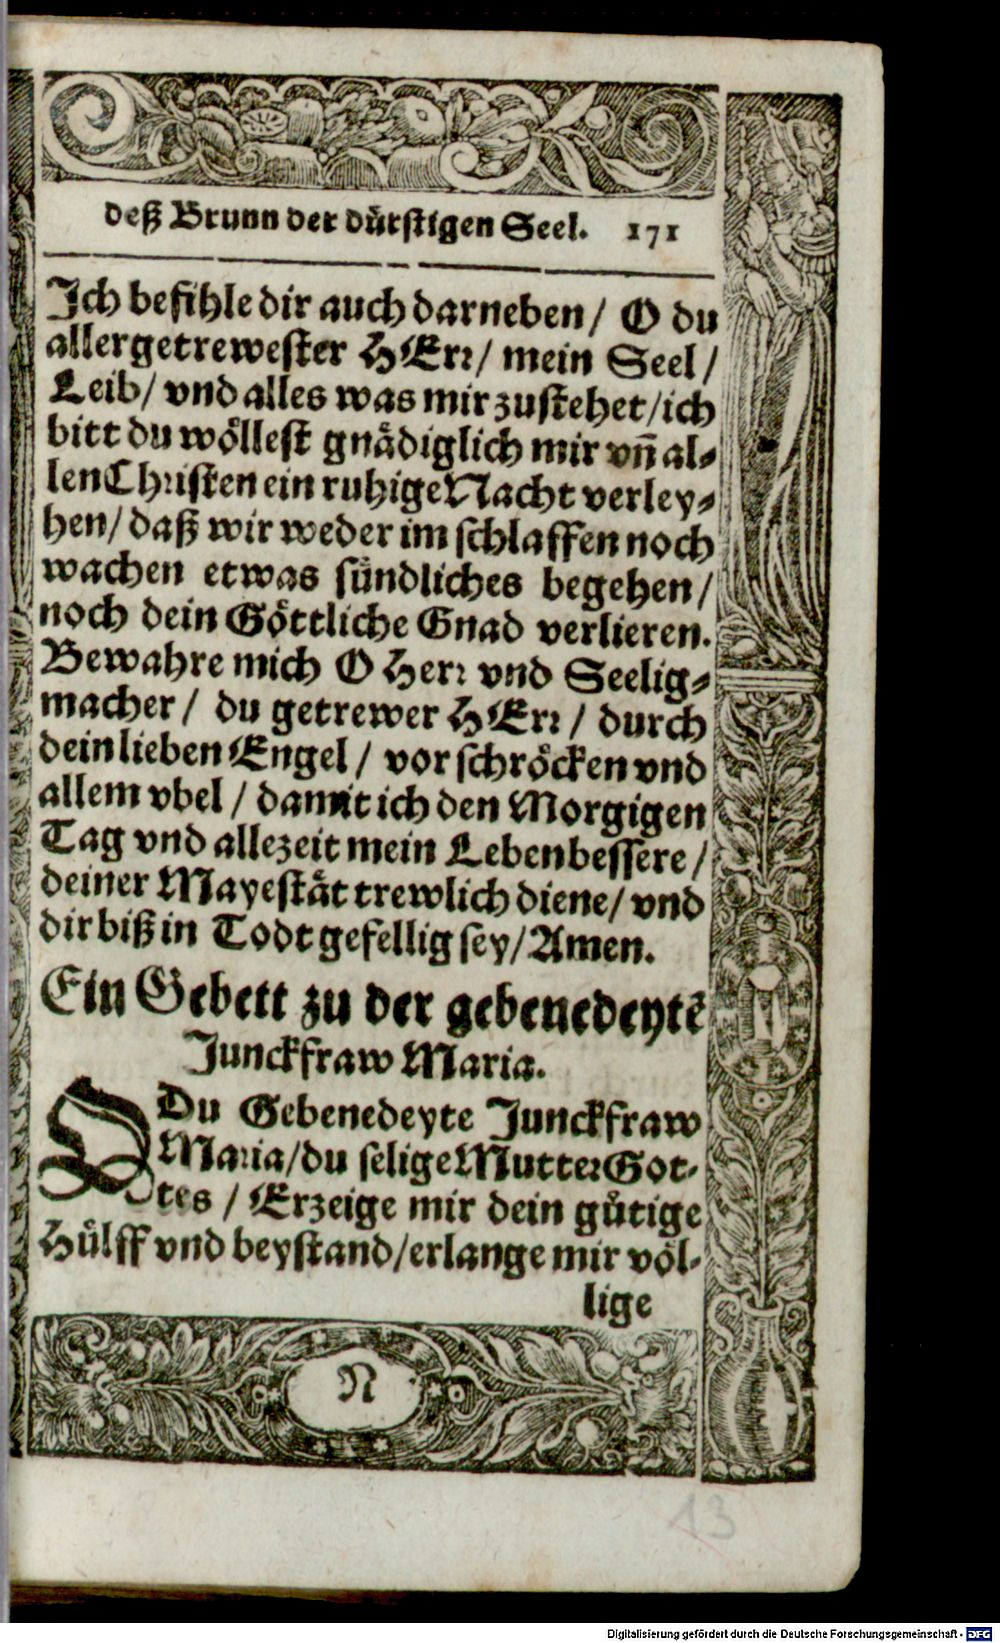 deß Brunn der dürstigen Seel. 171
Ich befihle dir auch darneben / O du
allergetrewester HErr / mein Seel /
Leib / vnd alles was mir zustehet / ich
bitt du wöllest gnädiglich mir vñ al-
len Christen ein ruhige Nacht verley-
hen / daß wir weder im schlaffen noch
wachen etwas sündliches begehen /
noch dein Göttliche Gnad verlieren.
Bewahre mich O Herr vnd Seelig-
macher / du getrewer HErr / durch
dein lieben Engel / vor schröcken vnd
allem vbel / damit ich den Morgigen
Tag vnd allezeit mein Leben bessere /
deiner Mayestät trewlich diene / vnd
dir biß in Todt gefellig sey / Amen.
Ein Gebett zu der gebenedeytẽ
Junckfraw Maria.
O Du Gebenedeyte Junckfraw
Maria / du selige Mutter Got-
tes / Erzeige mir dein gütige
Hülff vnd beystand / erlange mir völ-
lige
N
13
Digitalisierung gefördert durch die Deutsche Forschungsgemeinschaft - DFG